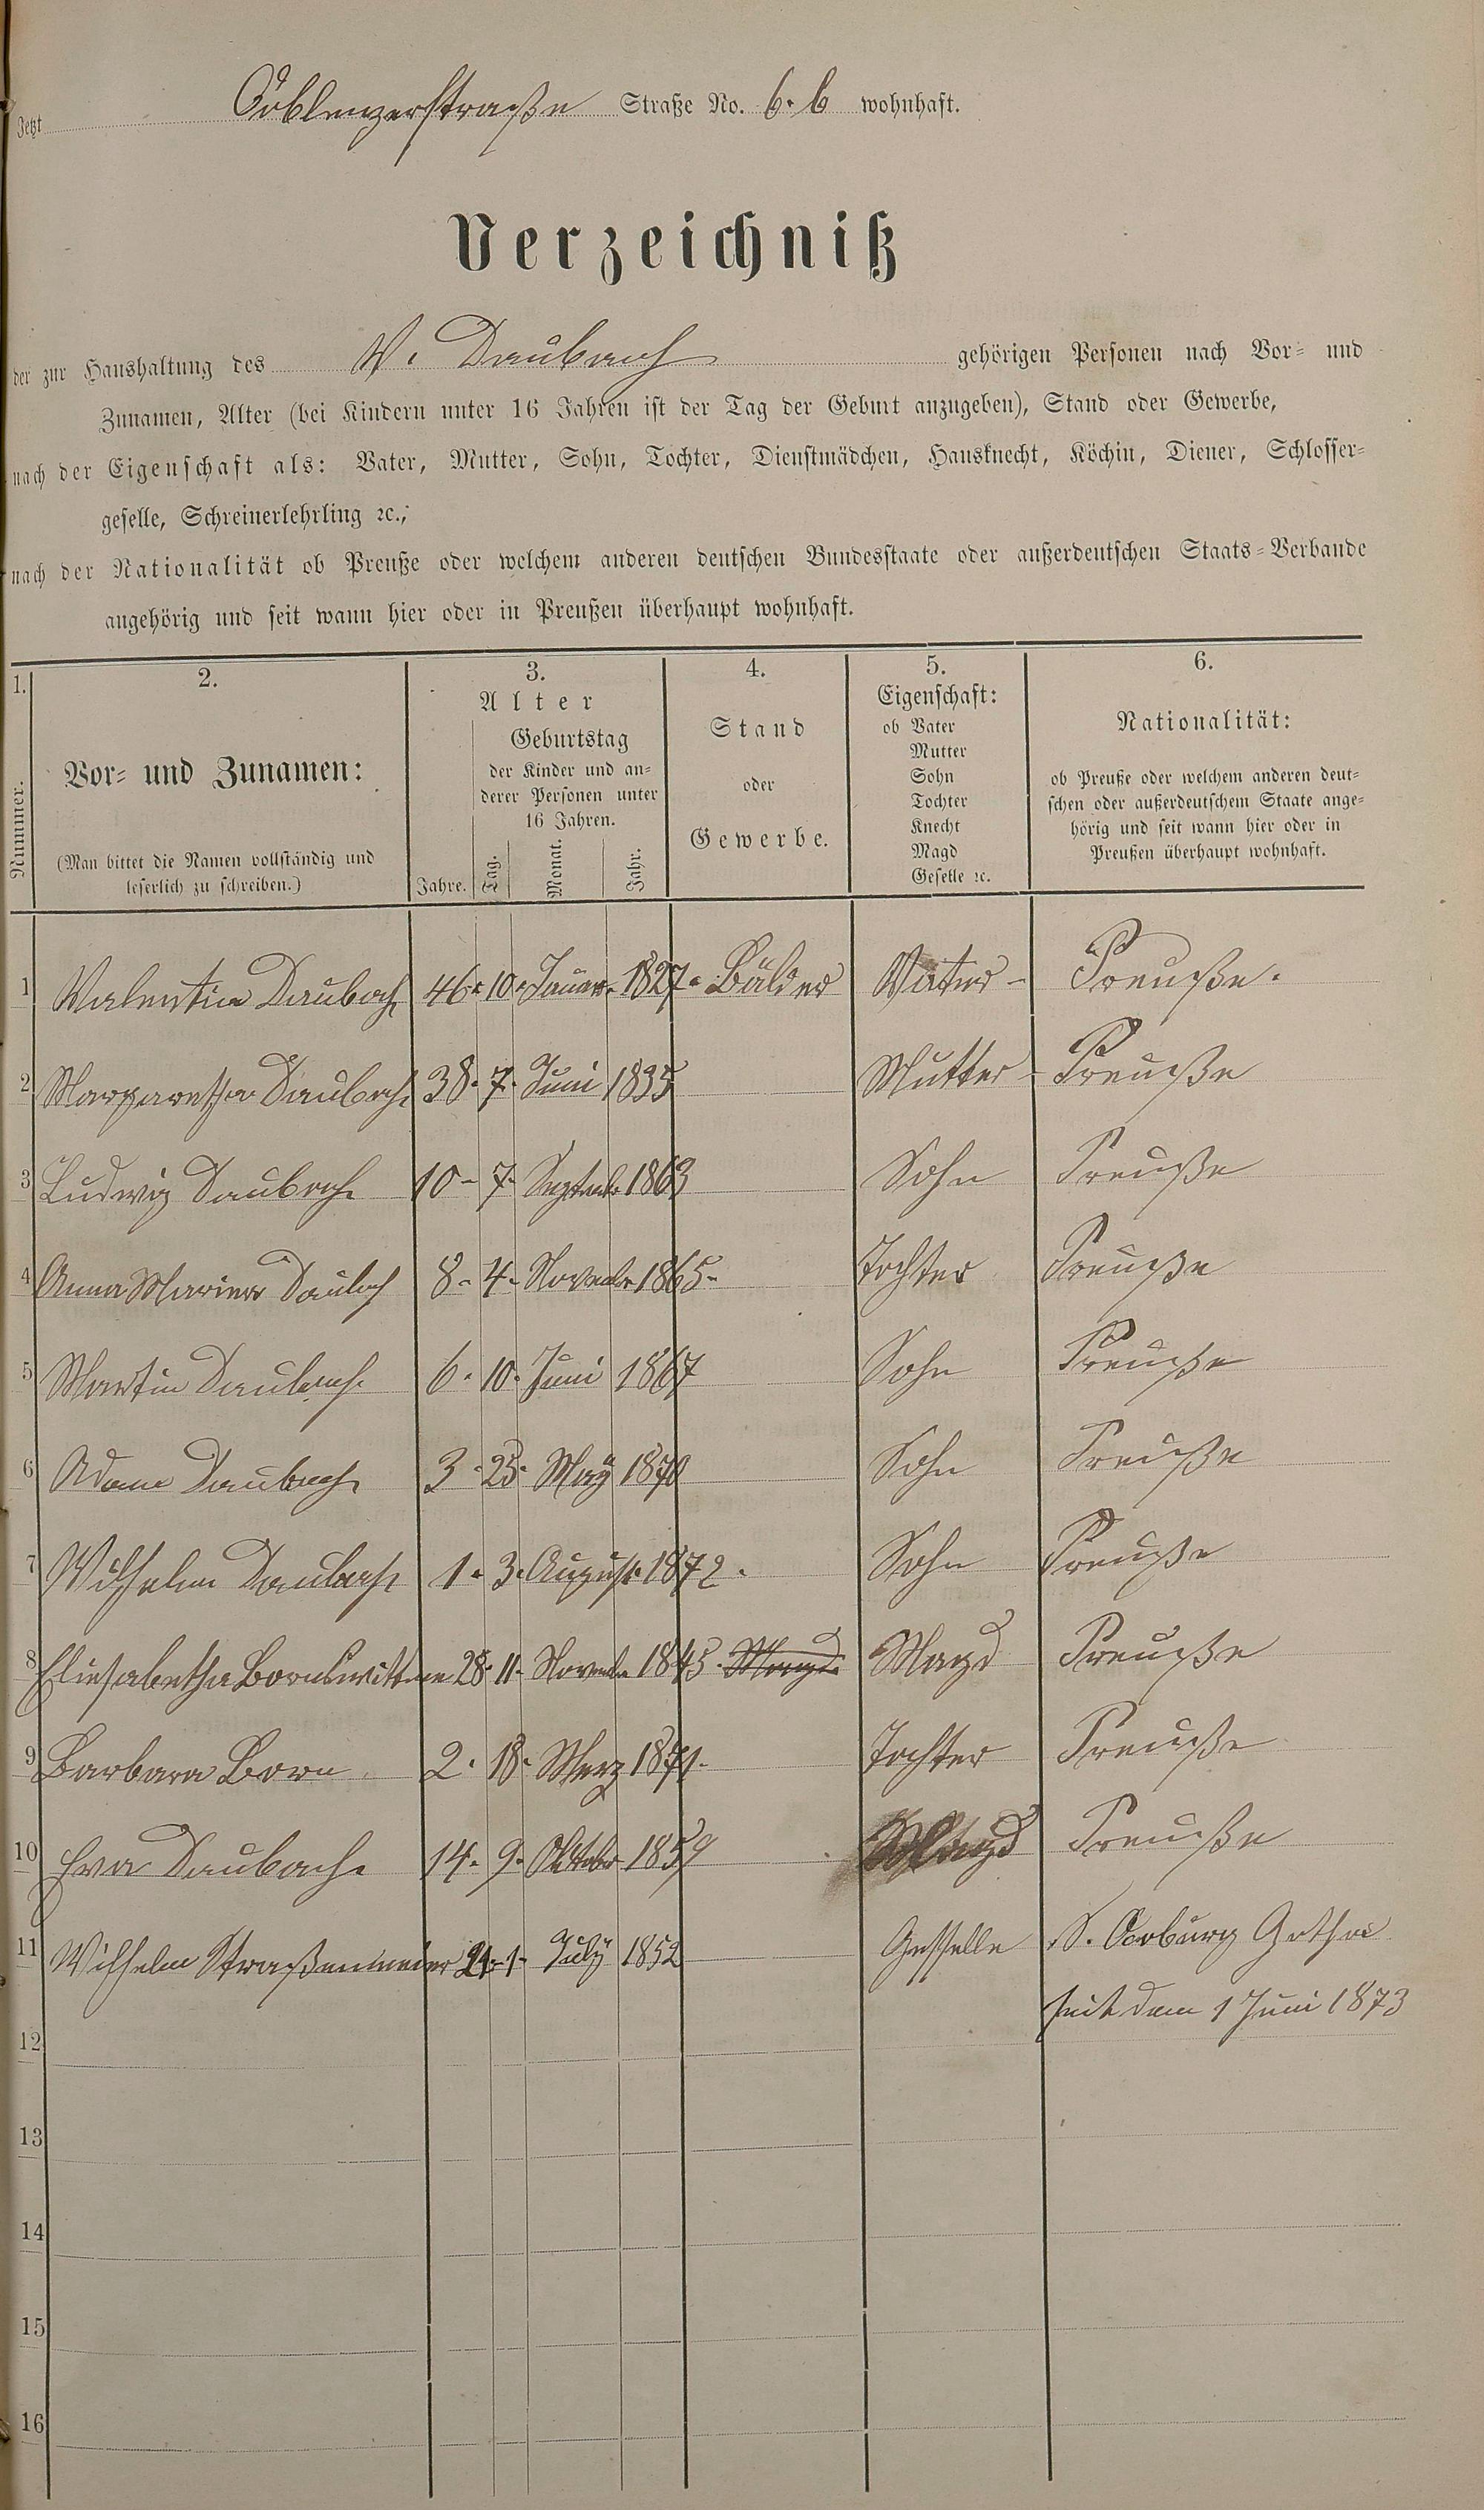 Jetzt Coblenzerstraße Straße No. 6. b wohnhaft.
Verzeichniß
der zur Haushaltung des V. Daubach gehörigen Personen nach Vor- und
Zunamen, Alter (bei Kindern unter 16 Jahren ist der Tag der Geburt anzugeben), Stand oder Gewerbe,
nach der Eigenschaft als: Vater, Mutter, Sohn, Tochter, Dienstmädchen, Hausknecht, Köchin, Diener, Schlosser-
geselle, Schreinerlehrling ꝛc.;
nach der Nationalität ob Preuße oder welchem anderen deutschen Bundesstaate oder außerdeutschen Staats-Verbande
angehörig und seit wann hier oder in Preußen überhaupt wohnhaft.
1. 2. 3. 4. 5. 6.
Nummer.
Vor- und Zunamen:
(Man bittet die Namen vollständig und
leserlich zu schreiben.)
Alter
Geburtstag
der Kinder und an-
derer Personen unter
16 Jahren.
Jahre. Tag. Monat. Jahr.
Stand
oder
Gewerbe.
Eigenschaft:
ob Vater
Mutter
Sohn
Tochter
Knecht
Magd
Geselle ꝛc.
Nationalität:
ob Preuße oder welchem anderen deut-
schen oder außerdeutschem Staate ange-
hörig und seit wann hier oder in
Preußen überhaupt wohnhaft.
1 Valentin Daubach 46 10 Januar 1827 Vater Preuße.
2 Margaretha Daubach 38 7 Juni 1835 Mutter Preuße
3 Ludwig Daubach 10 7 Septembr 1863 Sohn Preuße
4 Anna Maria Daubach 8 4 Novembr 1865 Tochter Preuße
5 Martin Daubach 6 10 Juni 1867 Sohn Preuße
6 Adam Daubach 3 25 May 1870 Sohn Preuße
7 Wilhelm Daubach 1 3 August 1872 Sohn Preuße
8 Eliesabetha Born 28 11 Novembr 1845 Magd Magd Preuße
9 Barbara Born 2 18 Merz 1871 Tochter Preuße
10 Eva Daubach 14 9 Oktobr 1859 Magd Preuße
11 Wilhelm Straßenmeier 21 1 July 1852 Gesselle S. Coburg Gotha
seit dem 1 Juni 1873
12
13
14
15
16